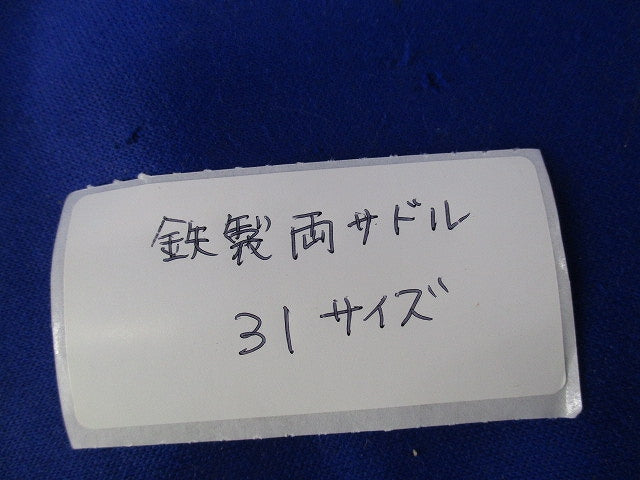 鉄製両サドル
31サイズ